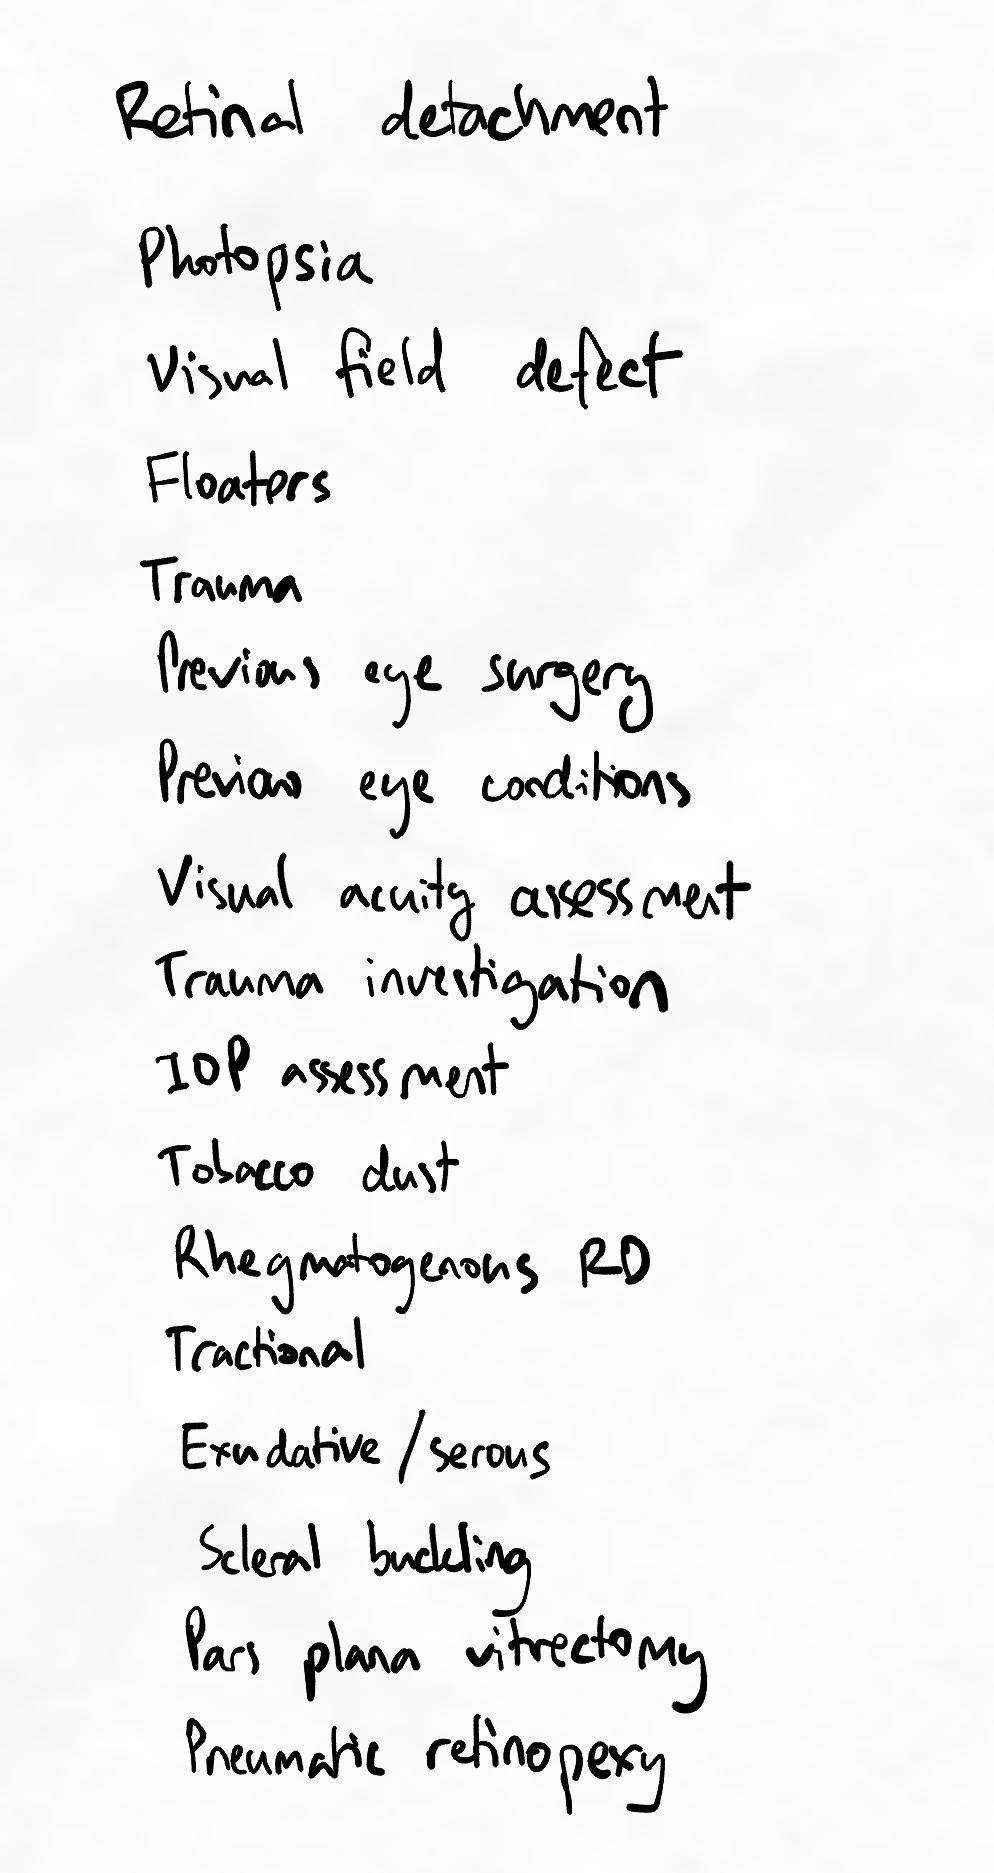 Retinal detachment
Photopsia
Visual field defect
Floaters
Trauma
Previous eye surgery
Previous eye conditions
Visual acuity assessment
Trauma investigation
IOP assessment
Tobacco dust
Rhegmatogenous RD
Tractional
Exudative/serous
Scleral buckling
Pars plana vitrectomy
Pneumatic retinopexy